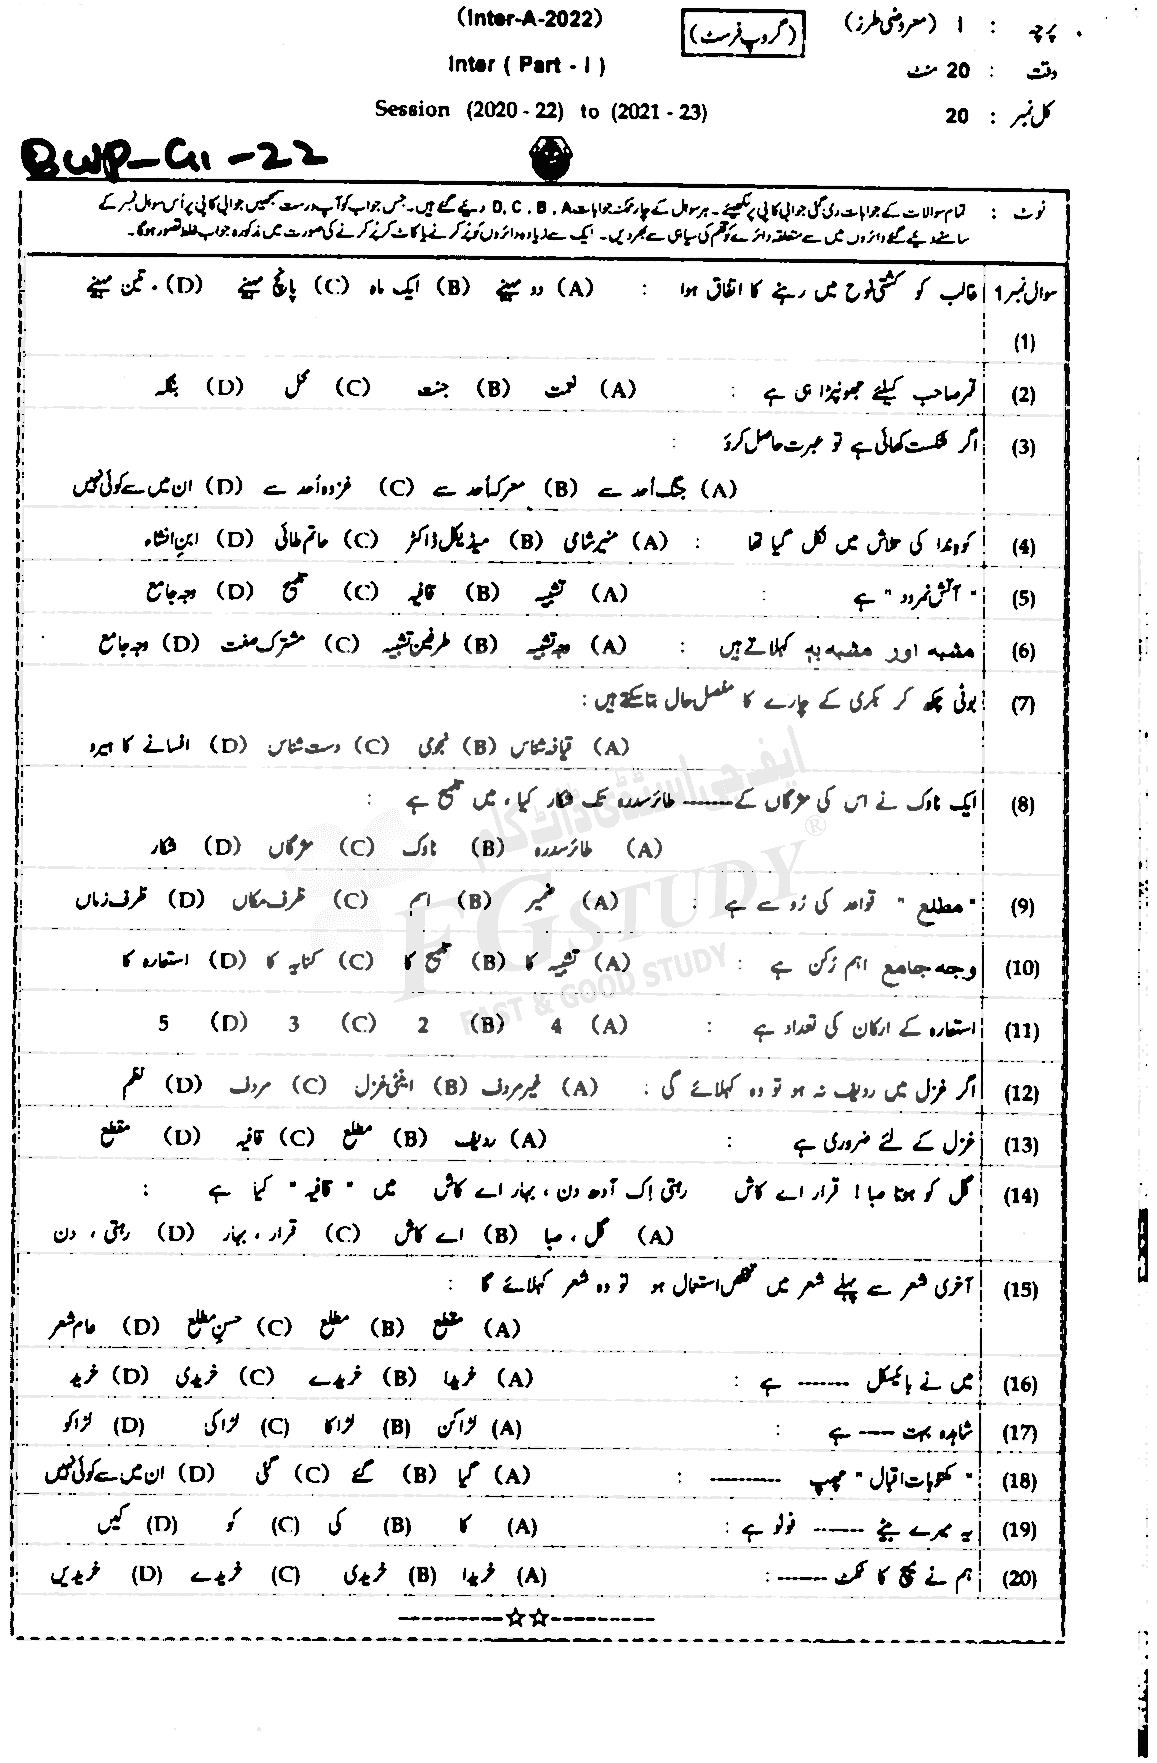 (Inter-A-2022)
(گروپ فرسٹ)
پرچہ : I (معروضی طرز)
Inter ( Part - I )
وقت : 20 منٹ
Session (2020 - 22) to (2021 - 23)
کل نمبر : 20
BWP-G1-22
نوٹ : تمام سوالات کے جوابات دی گئی جوابی کاپی پر لکھیئے۔ ہر سوال کے چار ممکنہ جوابات D, C, B, A دیئے گئے ہیں۔ جس جواب کو آپ درست سمجھیں جوابی کاپی پر اُس سوال نمبر کے
سامنے دیئے گئے دائروں میں سے متعلقہ دائرے کو قلم کی سیاہی سے بھر دیں۔ ایک سے زیادہ دائروں کو پُر کرنے یا کاٹ کر پُر کرنے کی صورت میں مذکورہ جواب غلط تصور ہوگا۔
سوال نمبر 1 غالب کو کشتی نوح میں رہنے کا اتفاق ہوا : (A) دو مہینے (B) ایک ماہ (C) پانچ مہینے (D) تین مہینے
(1)
(2) قمر صاحب کیلئے جھونپڑا ہی ہے : (A) نعمت (B) جنت (C) محل (D) بنگلہ
(3) اگر شکست کھائی ہے تو عبرت حاصل کرو :
(A) جنگ اُحد سے (B) معرکہ اُحد سے (C) غزوہ اُحد سے (D) ان میں سے کوئی نہیں
(4) کوہِ ندا کی تلاش میں نکل گیا تھا : (A) منیر شامی (B) میڈیکل ڈاکٹر (C) حاتم طائی (D) ابنِ انشاء
(5) " آتش نمرود " ہے : (A) تشبیہ (B) قافیہ (C) تلمیح (D) وجہ جامع
(6) مشبہ اور مشبہ بہٖ کہلاتے ہیں : (A) وجہ تشبیہ (B) طرفین تشبیہ (C) مشترک صفت (D) وجہ جامع
(7) بوٹی چکھ کر بکری کے چارے کا مفصل حال بتا سکتے ہیں :
(A) قیافہ شناس (B) نجومی (C) دست شناس (D) افسانے کا ہیرو
(8) ایک ناوک نے اس کی مژگاں کے ------ طائر سدرہ تک شکار کیا، میں تلمیح ہے :
(A) طائر سدرہ (B) ناوک (C) مژگاں (D) شکار
(9) " مطلع " قواعد کی رُو سے ہے : (A) ضمیر (B) اسم (C) ظرف مکاں (D) ظرف زماں
(10) وجہ جامع اہم رُکن ہے : (A) تشبیہ کا (B) تلمیح کا (C) کنایہ کا (D) استعارہ کا
(11) استعارہ کے ارکان کی تعداد ہے : (A) 4 (B) 2 (C) 3 (D) 5
(12) اگر غزل میں ردیف نہ ہو تو وہ کہلائے گی : (A) غیر مردف (B) اینٹی غزل (C) مردف (D) نظم
(13) غزل کے لئے ضروری ہے : (A) ردیف (B) مطلع (C) قافیہ (D) مقطع
(14) گل کو ہوتا صبا ! قرار اے کاش رہتی اِک آدھ دن ، بہار اے کاش میں " قافیہ " کیا ہے :
(A) گل ، صبا (B) اے کاش (C) قرار ، بہار (D) رہتی ، دن
(15) آخری شعر سے پہلے شعر میں تخلص استعمال ہو تو وہ شعر کہلائے گا :
(A) مقطع (B) مطلع (C) حسنِ مطلع (D) عام شعر
(16) میں نے بائیسکل ------ ہے : (A) خریدا (B) خریدے (C) خریدی (D) خرید
(17) شاہدہ بہت ---- ہے : (A) لڑاکن (B) لڑاکا (C) لڑاکی (D) لڑاکو
(18) " مکتوبات اقبال " چھپ -------- : (A) گیا (B) گئے (C) گئی (D) ان میں سے کوئی نہیں
(19) یہ میرے بیٹے ------ فوٹو ہے : (A) کا (B) کی (C) کو (D) کیں
(20) ہم نے میچ کا ٹکٹ ------ : (A) خریدا (B) خریدی (C) خریدے (D) خریدیں
ایف جی اسٹڈی ڈاٹ کام
FGSTUDY ®
FAST & GOOD STUDY